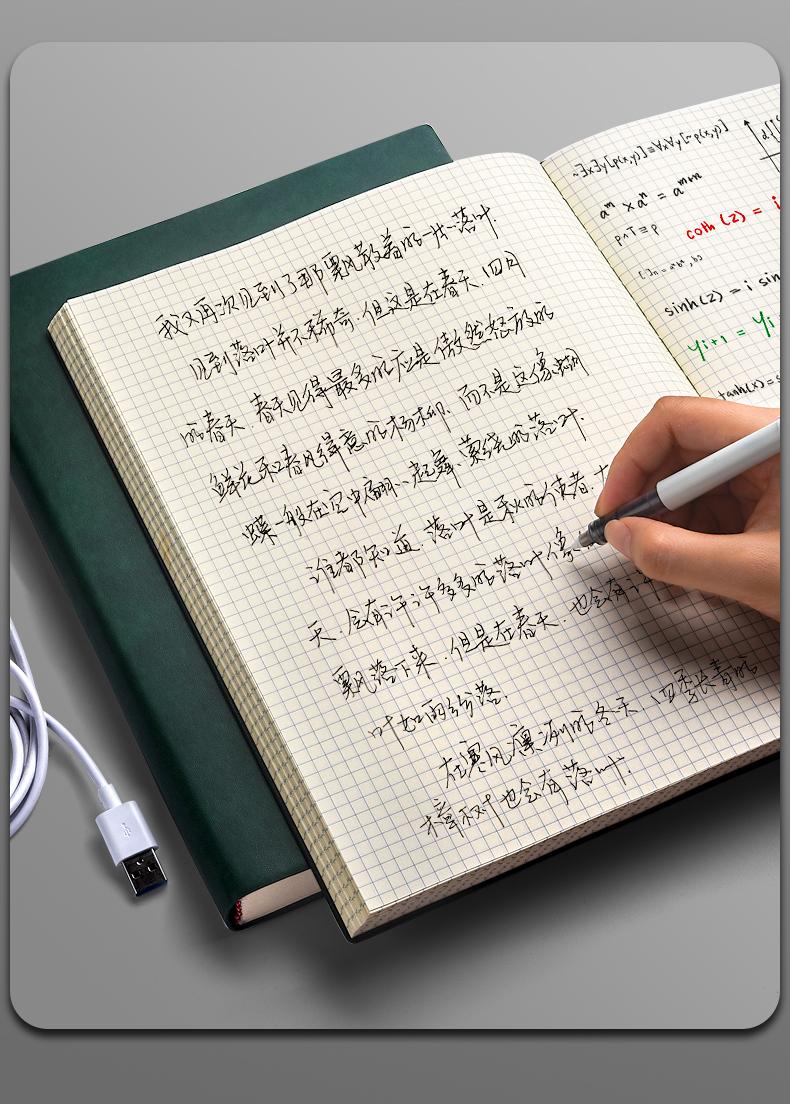 我又再次见到了那飘散着的一片落叶.
见到落叶并不稀奇.但这是在春天.四月
的春天.春天见得最多的应是傲然怒放的
鲜花和春风得意的杨柳.而不是这像蝴
蝶一般在空中翩翩起舞.萦绕的落叶.
谁都知道.落叶是秋的使者.
天.会有许许多多的落叶像
飘落下来.但是在春天.也会有许
叶如雨纷落.
在寒风凛冽的冬天.四季长青的
樟树也会有落叶.
~∃x∃y[p(x,y)]≡∀x∀y[~p(x,y)]
aᵐ × aⁿ = aᵐ⁺ⁿ
p∧T≡p
coth (z) = i
sinh(z) = i sin
yi+1 = yi
tanh(x)=s